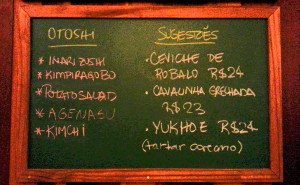 OTOSHI
* INARIZUSHI
* KIMPIRAGOBO
* POTATO SALAD
* AGENASU
* KIMCHI
SUGESTÕES
• CEVICHE DE
ROBALO R$24
• CAVALINHA GRELHADA
R$23
• YUKHOE R$24
(tartar coreano)